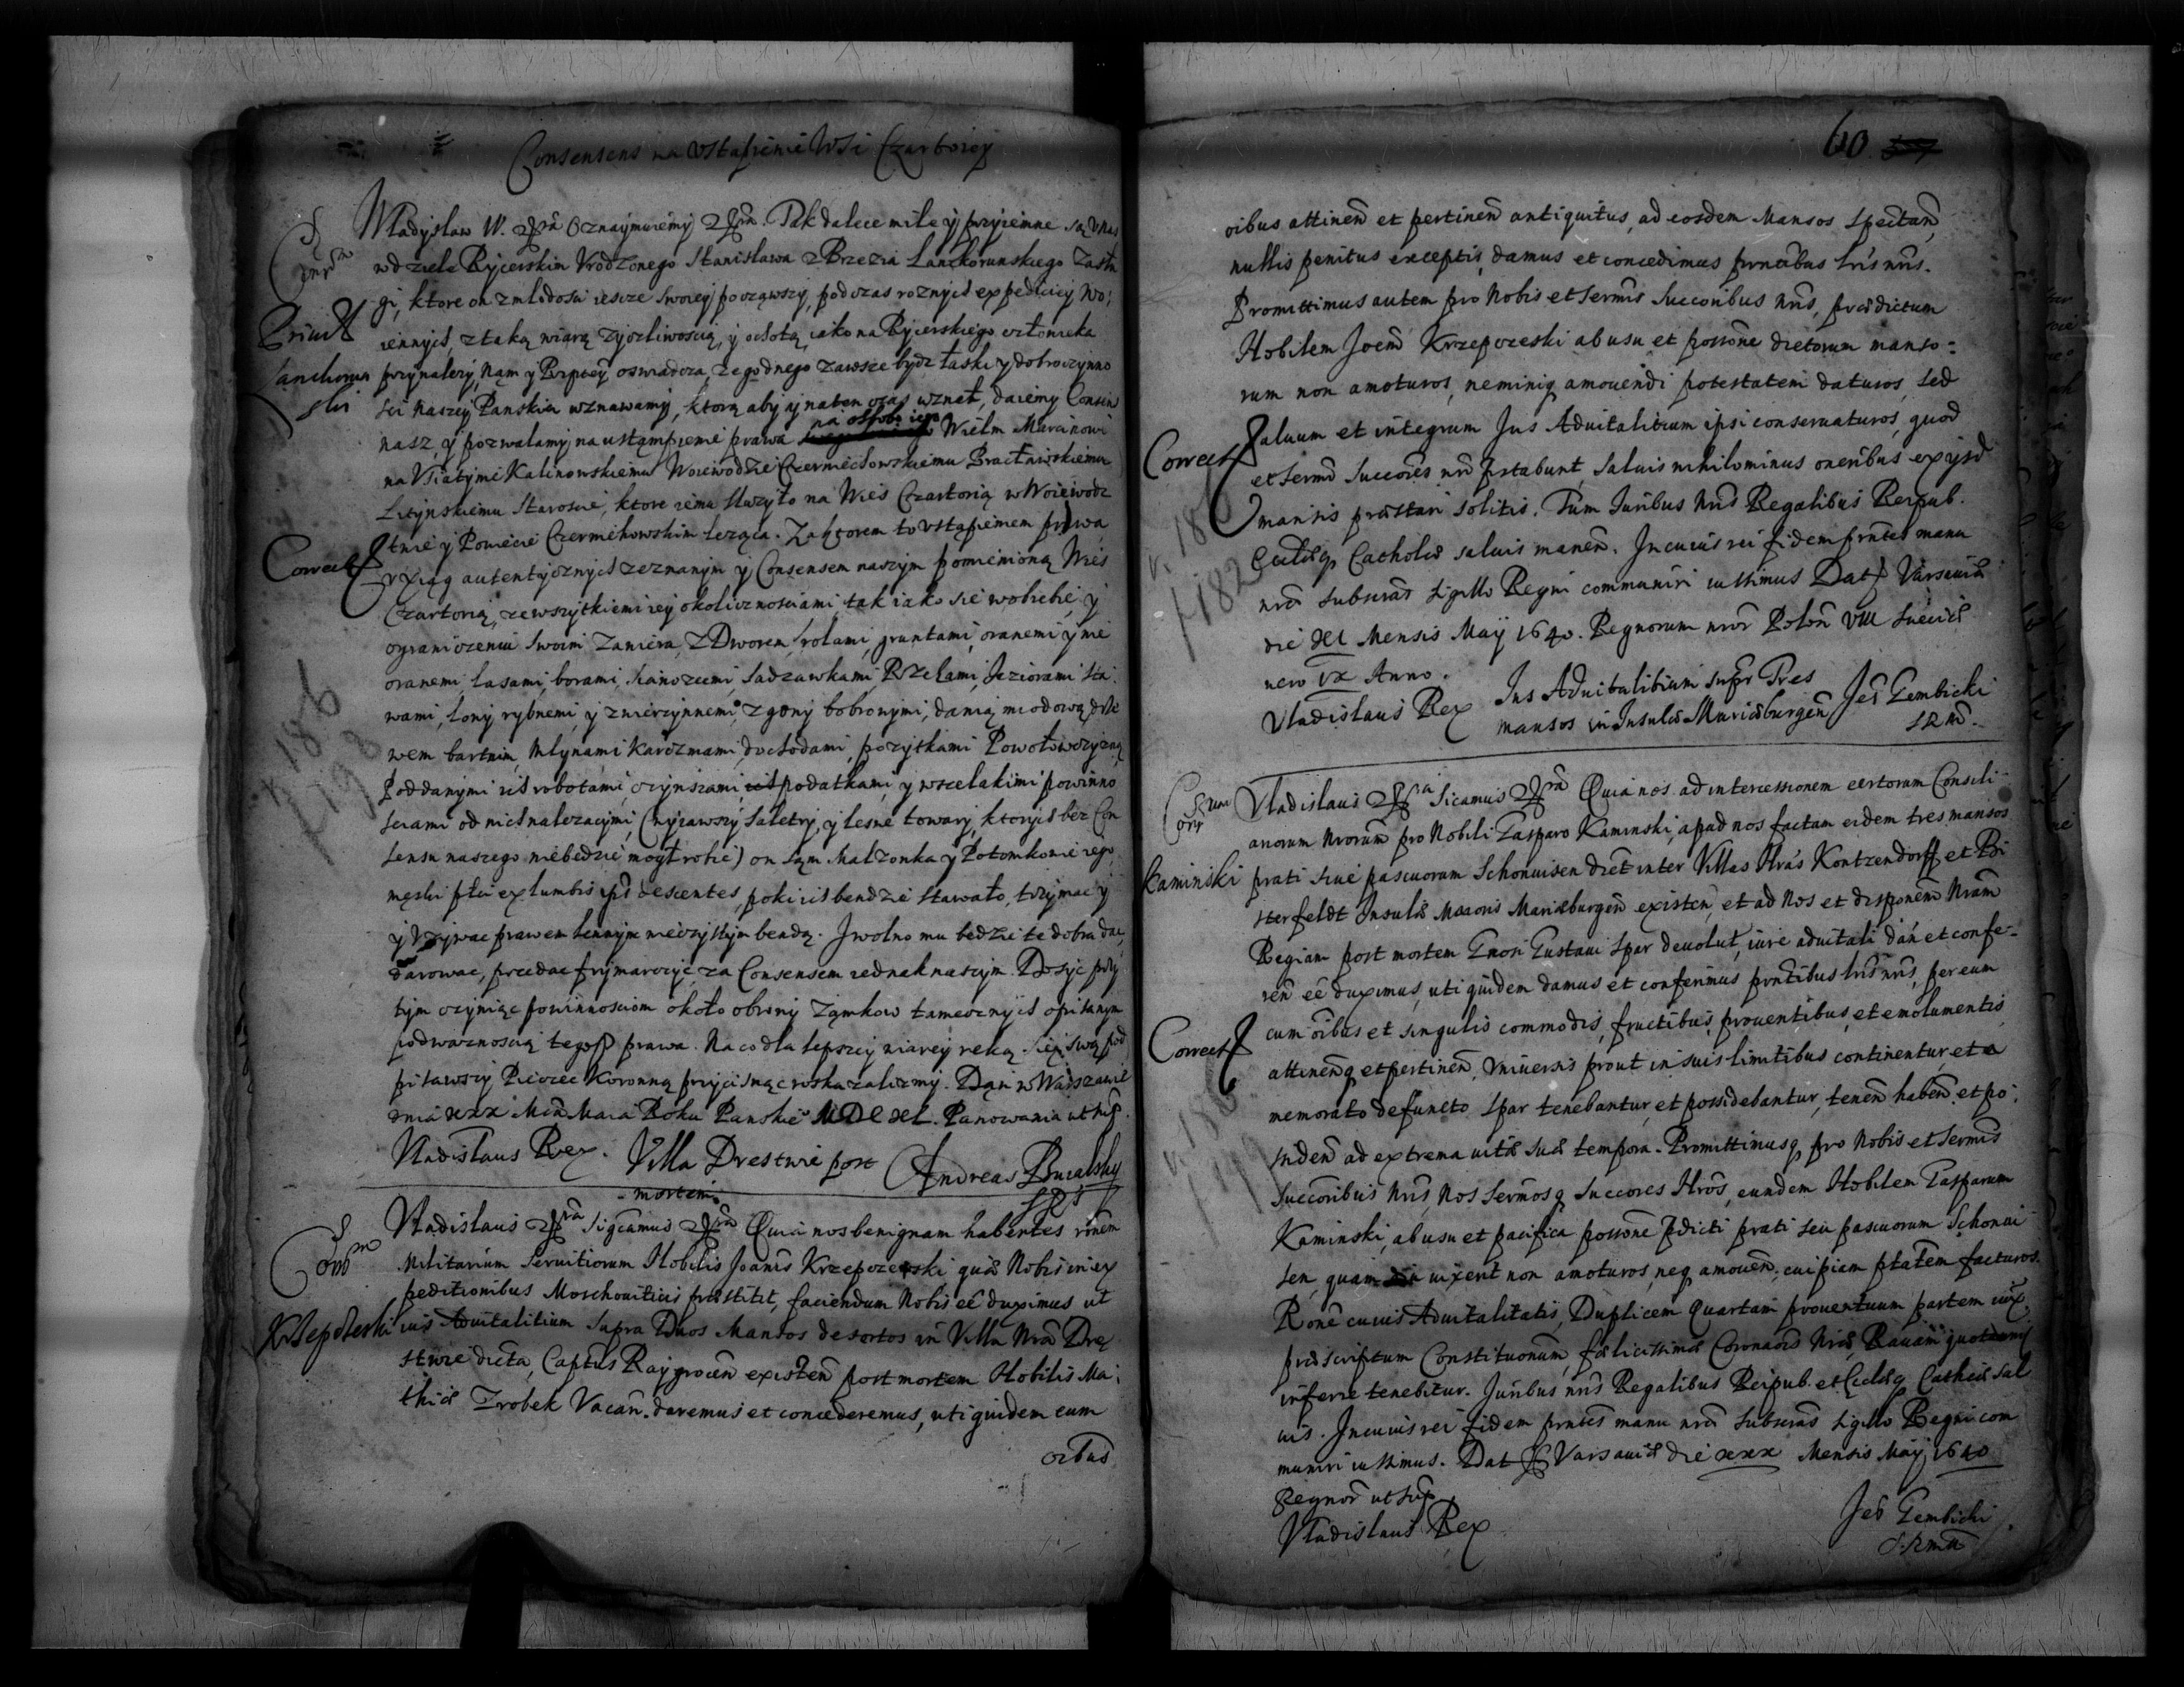 Consensens na Vstąpienie Wsi Czartoriey
Władysław IV. Oznaymuiemy Pak dalece miłe y przyiemne są V nas
w dziele Rycerskim Vrodzonego Stanisława z Brzezia Lanckorunskiego Zasłu
gi, ktore on z młodosci iescze swoiey począwszy, podczas roznych expediciey wo:
iennych, z taką wiarą życzliwoscią, y ochotą, iako na Rycerskiego człowieka
przynależy, Nąm y Rzptey oswiadcza, że godnego zawsze bydz łaski y dobroczynno
sci Naszey Panskiei wznawamy, ktorą aby y na ten czas wznał, daiemy Consens
na osobę iego
nasz, y pozwalamy na ustąmpienie prawa Wielm Marcinowi
na Vsiatymie Kalinowskiemu Woiewodzie Czerniechowskiemu Bracławskiemu
Lityńskiemu Staroscie, ktore iemu służyło na Wieś Czartorią w Woiewodz
twie y Powiecie Czerniehowskim leżąca. Za ktorem to Vstąpieniem prawa
y Xiąg autentycznych zeznanym y Consensem naszym pomienioną Wieś
Czartorią, ze wszytkiemi iey okolicznosciami, tak iako sie w obrębie, y
ograniczeniu swoim zawiera, z Dworem, rolami, gruntami, oranemi y nie
oranemi, lasami, borami, sianożęćmi, Sadzawkami, Rzekami, Jeziorami sta:
wami, łony rybnemi, y zwierzynnemi, z gony bobronymi, danią miodową drze
wem bartnim, Młynami karczmami, dochodami, pożytkami Powołowczyzną
Poddanymi ich robotami, czynszami, podatkami, y wszelakimi powinno
sciami od nich nalezącymi, (wyiąwszy Saletry, y lesne towary, ktorych bez Con
sensu naszego niebedzie mogł robic) on sąm Małzonka y Potomkowie iego
męski płci ex lumbis descentes, poki ich bendzie stawało, trzymac y
y Vzywac prawem lennym wieczystym bendą. I wolno mu będzie te dobra dac,
darowac, przedac frymarczyć za Consensem iednak naszym. Dosyc przy
tym czyniąc powinnosciom około obrony Ząmkow tamecznych opisanym
pod waznoscią tegoż prawa. Na co dla lepszey wiarey ręką się swą pod
pisawszy Pieczec Koronną przycisnąc roskazalismy. Dąn w Warszawie
dnia xxx Mca Maia Roku Panskie MDCXL. Panowania ut sup.
Vladislaus Rex. Villa Drestwie post Andreas
mortem
Vladislaus Significamus Quia nos benignam habentes rōnem
Militarium Seruitiorum Nobilis Joannis Krzepczewski quæ Nobis in ex
peditionibus Moschouiticis præstitit, faciendum Nobis eē duximus ut
Krzepczeski ius Aduitalitium supra Duos Mansos desertos in Villa Nrā Dre
stwie dicta, Captus Raygrocen existen post mortem Nobilis Ma:
thiæ Zrobek Vacan. daremus et concederemus, uti quidem cum
oibus
60.
oibus attinen et pertinen antiquitus, ad eosdem Mansos spectan,
nullis penitus exceptis, damus et concedimus prntibus lris nris.
Promittimus autem pro Nobis et Sermis Succoribus nris, prædictum
Nobilem Joem Krzepczeski ab usu et possone dictorum manso:
rum non amoturos, neminiq amouendi potestatem daturos, sed
Correct
Saluum et integrum Jus Aduitalitium ipsi conseruaturos, quod
et Sermi Succores nri prstabunt, saluis nihilominus oneribus ex ijsd
mansis præstari solitis. Tum Juribus Nris Regalibus Reipub.
Ecclæq Catholicæ saluis manen. In cuius rei fidem prntes manu
nra subscras sigillo Regni communiri iussimus Dat Varsauiæ
die XXX Mensis Maij 1640. Regnorum nror Polon VIII Sueciæ
vero IX Anno.
Vladislaus Rex Jus Aduitalitium supr Tres Jes Gembicki
mansos in Insula Mariæburgen SRM.
Vladislaus Sicamus Quia nos ad intercessionem certorum Consili
ariorum Nrorum pro Nobili Casparo Kaminski, apud nos factam eidem tres mansos
Kaminski prati siue pascuorum Schonuisen dict inter Villas Nras Kontzendorff et Poi
sterfeldt Insulæ Maioris Mariæburgen existen, et ad Nos et disponem Nram
Regiam post mortem Gnosi Gustaui Spar deuolut, iure aduitali dan et confe-
ren eē duximus, uti quidem damus et conferimus prntibus lris nris, per eum
Correct
cum oibus et singulis commodis, fructibus, prouentibus, et emolumentis
attinenq et pertinen, Vniuersis prout in suis limitibus continentur, et a
memorato defuncto Spar tenebantur, et possidebantur, tenen haben et po:
siden ad extrema uitæ suæ tempora. Promittimusq pro Nobis et Sermis
Succoribus Nris, Nos Sermosq Succores Nros, eundem Nobilem Casparum
Kaminski, ab usu et pacifica possone pdicti prati seu pascuorum Schonui
sen, quam uixerit non amoturos, neq amouen, cuipiam ptatem facturos.
Rone cuius Aduitalitatis, Duplicem Quartam prouentuum partem iux
præscriptum Constitutionum, fœlicissimæ Coronaois Nræ, Rauam quotannis
inferre tenebitur. Juribus nris Regalibus Reipub. et Ecclæq Catholicæ sal
uis. In cuius rei fidem prntes manu nra subscras sigillo Regni com
muniri iussimus. Dat Varsauiæ die xxx Mensis Maij 1640
Regnor ut sup.
Vladislaus Rex Jes Gembicki
S.R.M.